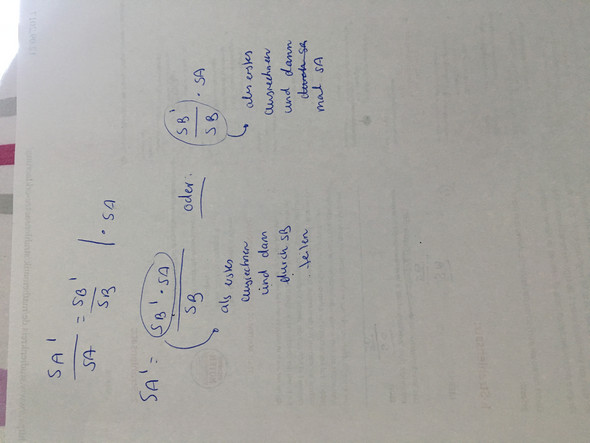 SA' / SA = SB' / SB | · SA
SA' = SB' · SA / SB
als erstes
ausrechnen
und dann
durch SB
teilen
oder:
SB' / SB · SA
als erstes
ausrechnen
und dann
durch SB
mal SA